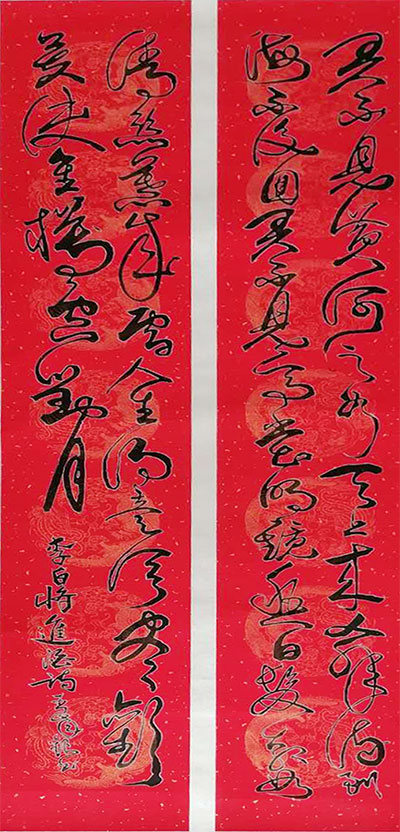 君不見黃河之水天上來奔流到
海不復回君不見高堂明鏡悲白髮朝如
青絲暮成雪人生得意須盡歡
莫使金樽空對月
李白將進酒詩